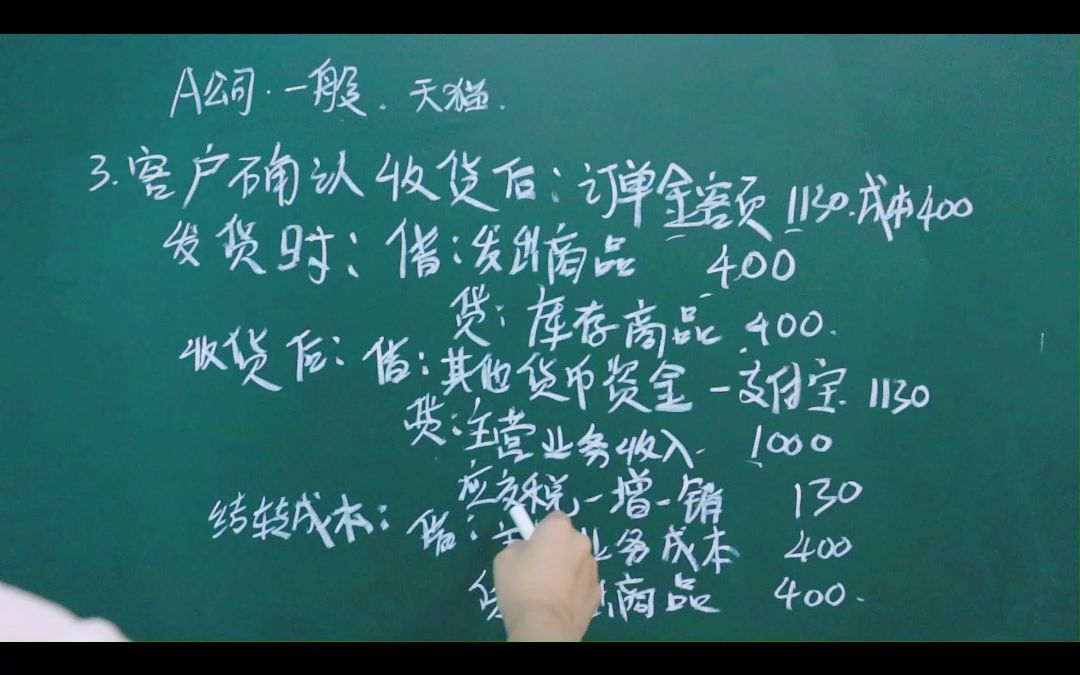 A公司.一般.天猫.
3.客户确认收货后:订单金额1130.成本400
发货时:借:发出商品 400
贷:库存商品 400.
收货后:借:其他货币资金-支付宝 1130
贷:主营业务收入 1000
应交税-增-销 130
结转成本:借:主 业务成本 400
商品 400.